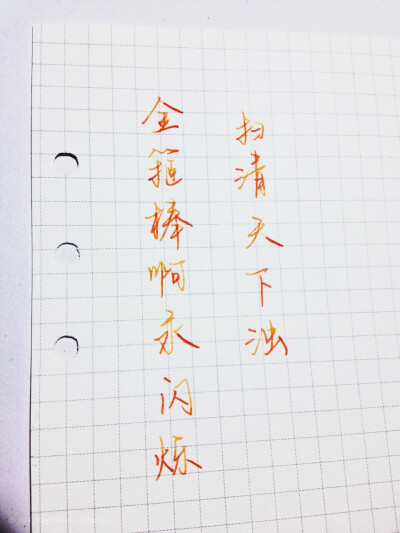 金箍棒啊永闪烁
扫清天下浊